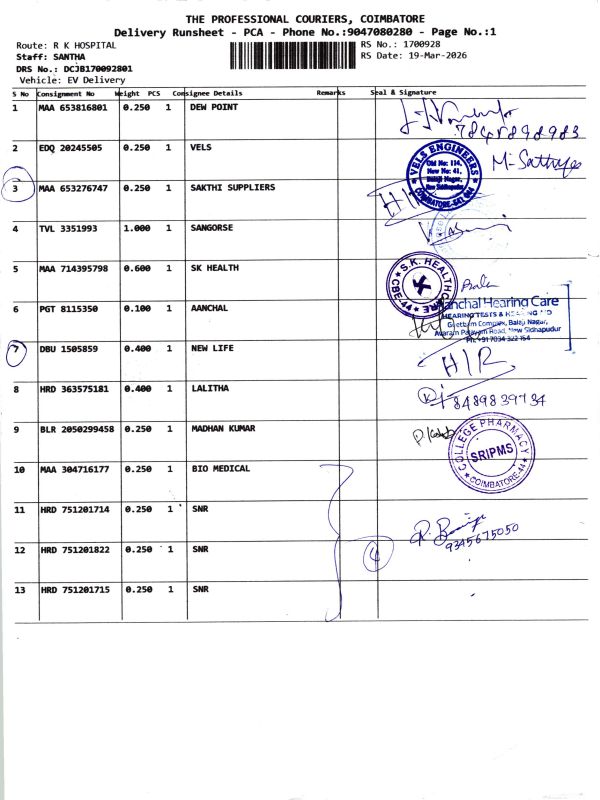 THE PROFESSIONAL COURIERS, COIMBATORE
Delivery Runsheet - PCA - Phone No.:9047080280 - Page No.:1
Route: R K HOSPITAL
RS No.: 1700928
Staff: SANTHA
RS Date: 19-Mar-2026
DRS No.: DCJB170092801
Vehicle: EV Delivery
S No Consignment No Weight PCS Consignee Details Remarks Seal & Signature
1 MAA 653816801 0.250 1 DEW POINT
2 EDQ 20245505 0.250 1 VELS
VELS ENGINEERS
Old No: 114,
New No: 41,
Balaji Nagar,
New Sidhapudur
3 MAA 653276747 0.250 1 SAKTHI SUPPLIERS
4 TVL 3351993 1.000 1 SANGORSE
5 MAA 714395798 0.600 1 SK HEALTH
S.K. HEALTHCARE
CBE-44
Bala
6 PGT 8115350 0.100 1 AANCHAL
Aanchal Hearing Care
HEARING TESTS & HEARING AID
Geetham Complex, Balaji Nagar,
Avaram Palayam Road, New Sidhapudur
7 DBU 1505859 0.400 1 NEW LIFE
H/R
8 HRD 363575181 0.400 1 LALITHA
8489839734
9 BLR 2050299458 0.250 1 MADHAN KUMAR
COLLEGE PHARMACY
SRIPMS
COIMBATORE-44
10 MAA 304716177 0.250 1 BIO MEDICAL
11 HRD 751201714 0.250 1 SNR
9345675050
12 HRD 751201822 0.250 1 SNR
4
13 HRD 751201715 0.250 1 SNR